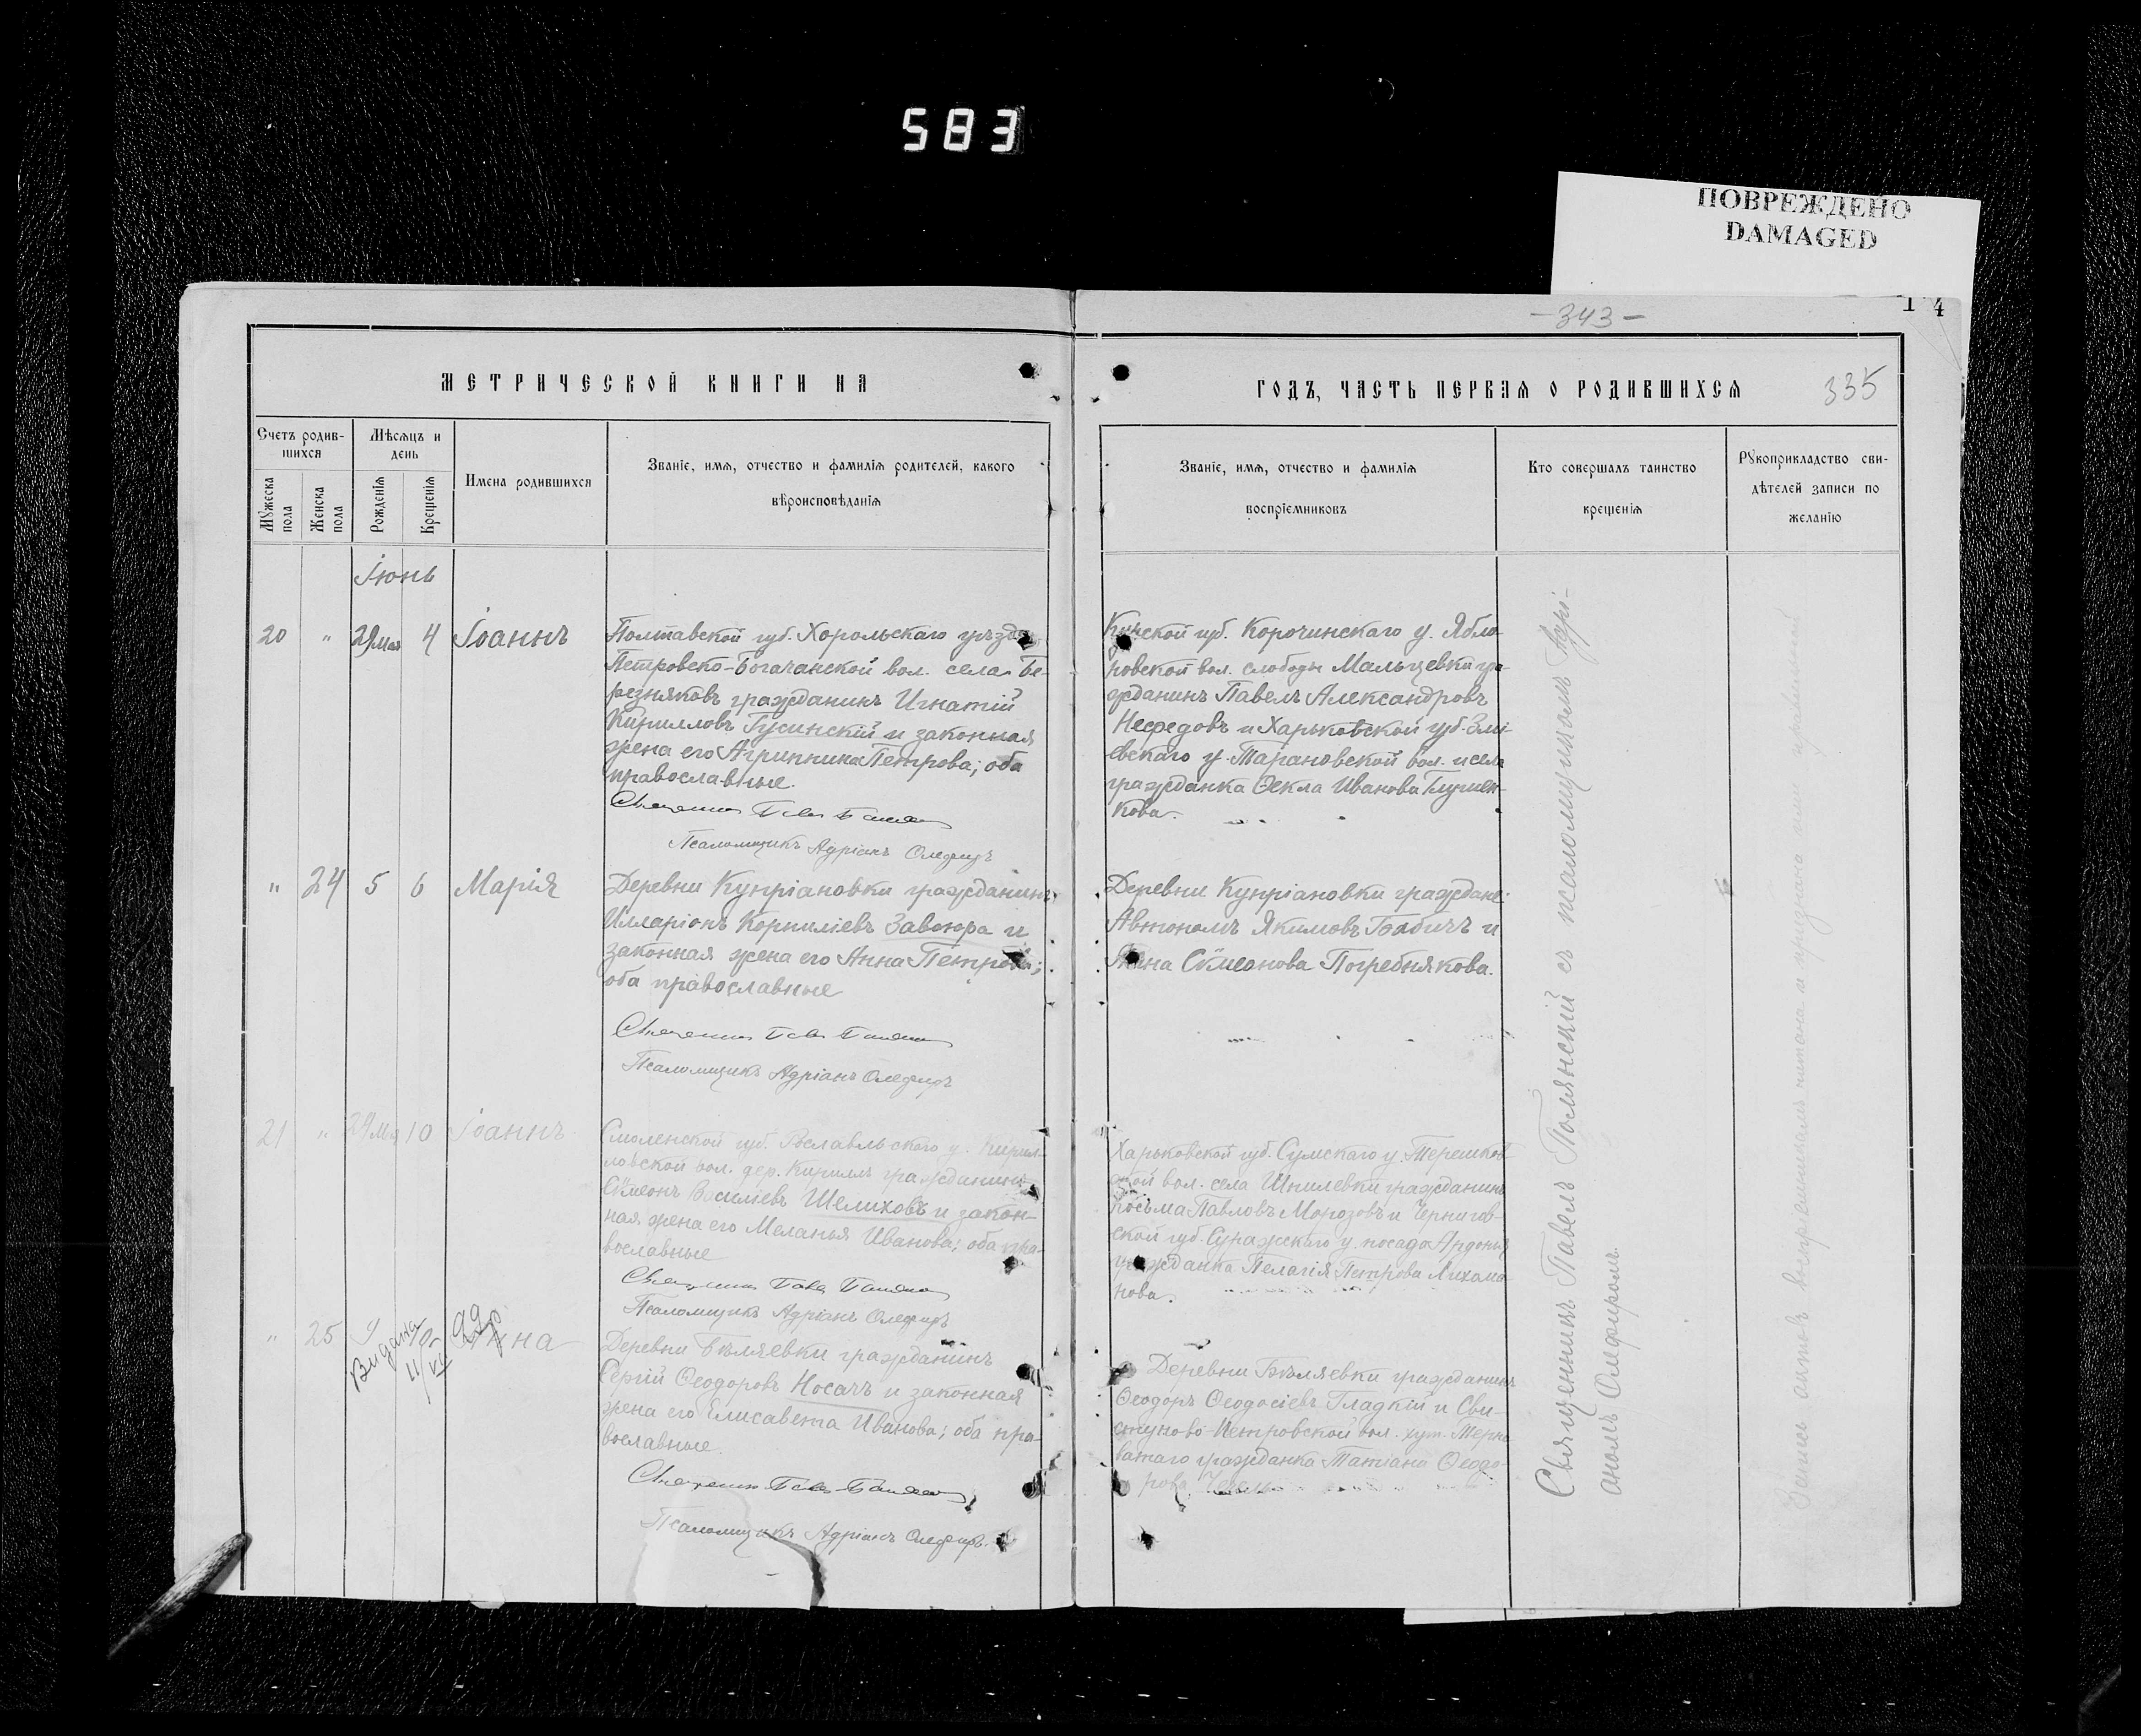 583
ПОВРЕЖДЕНО
DAMAGED
14
-343-
МЕТРИЧЕСКОЙ КНИГИ НА
ГОДЪ, ЧАСТЬ ПЕРВАЯ О РОДИВШИХСЯ
335
Счетъ родив-
шихся
Мужеска
пола
Женска
пола
Мѣсяцъ и
день
Рожденія
Крещенія
Имена родившихся
Званіе, имя, отчество и фамилія родителей, какого
вѣроисповѣданія
Званіе, имя, отчество и фамилія
воспріемниковъ
Кто совершалъ таинство
крещенія
Рукоприкладство сви-
дѣтелей записи по
желанію
Іюнь
20 " 29 мая 4 Іоаннъ
Полтавской губ. Хорольскаго уѣзда
Петровско-Богачанской вол. села Бе-
резняковъ гражданинъ Игнатій
Кирилловъ Гусинскій и законная
жена его Агриппина Петрова; оба
православные.
Священникъ
Псаломщикъ Адріанъ Олефиръ
Курской губ. Корочинскаго у. Ябло-
новской вол. слободы Мальцевки гра-
жданинъ Павелъ Александровъ
Нефедовъ и Харьковской губ. Змі-
евскаго у. Тарановской вол. и села
гражданка Ѳекла Иванова
кова.
" 24 5 6 Марія
Деревни Купріановки гражданинъ
Илларіонъ Корниліевъ Завгора и
законная жена его Анна Петрова;
оба православные
Священникъ
Псаломщикъ Адріанъ Олефиръ
Деревни Купріановки граждане:
Автономъ Якимовъ Бабичъ и
Анна Сѵмеонова Погребнякова.
21 " 24 мая 10 Іоаннъ
Смоленской губ. Рославльскаго у. Кирил-
ловской вол. дер. Кириллъ гражданинъ
Сѵмеонъ Василіевъ Шелиховъ и закон-
ная жена его Меланья Иванова; оба пра-
вославные
Священникъ
Псаломщикъ Адріанъ Олефиръ
Харьковской губ. Сумскаго у. Терешков-
ской вол. села Шпилевки гражданинъ
Косьма Павловъ Морозовъ и Чернигов-
ской губ. Суражскаго у. посада Ардонь
гражданка Пелагія Петрова Лихома-
нова.
" 25 9 10 Анна
Видана
Деревни Бѣляевки гражданинъ
Сергій Ѳеодоровъ Носачъ и законная
жена его Елисавета Иванова; оба пра-
вославные.
Священникъ
Псаломщикъ Адріанъ Олефиръ.
Деревни Бѣляевки гражданинъ
Ѳеодоръ Ѳеодосіевъ Гладкій и Сви-
стуново-Петровской вол. хут. Терно-
ватаго гражданка Татіана Ѳеодо-
рова
Священникъ Павелъ Полянскій съ псаломщикомъ Адрі-
аномъ Олефиромъ.
Запись актовъ воспріемникамъ читана и признана ими правильной